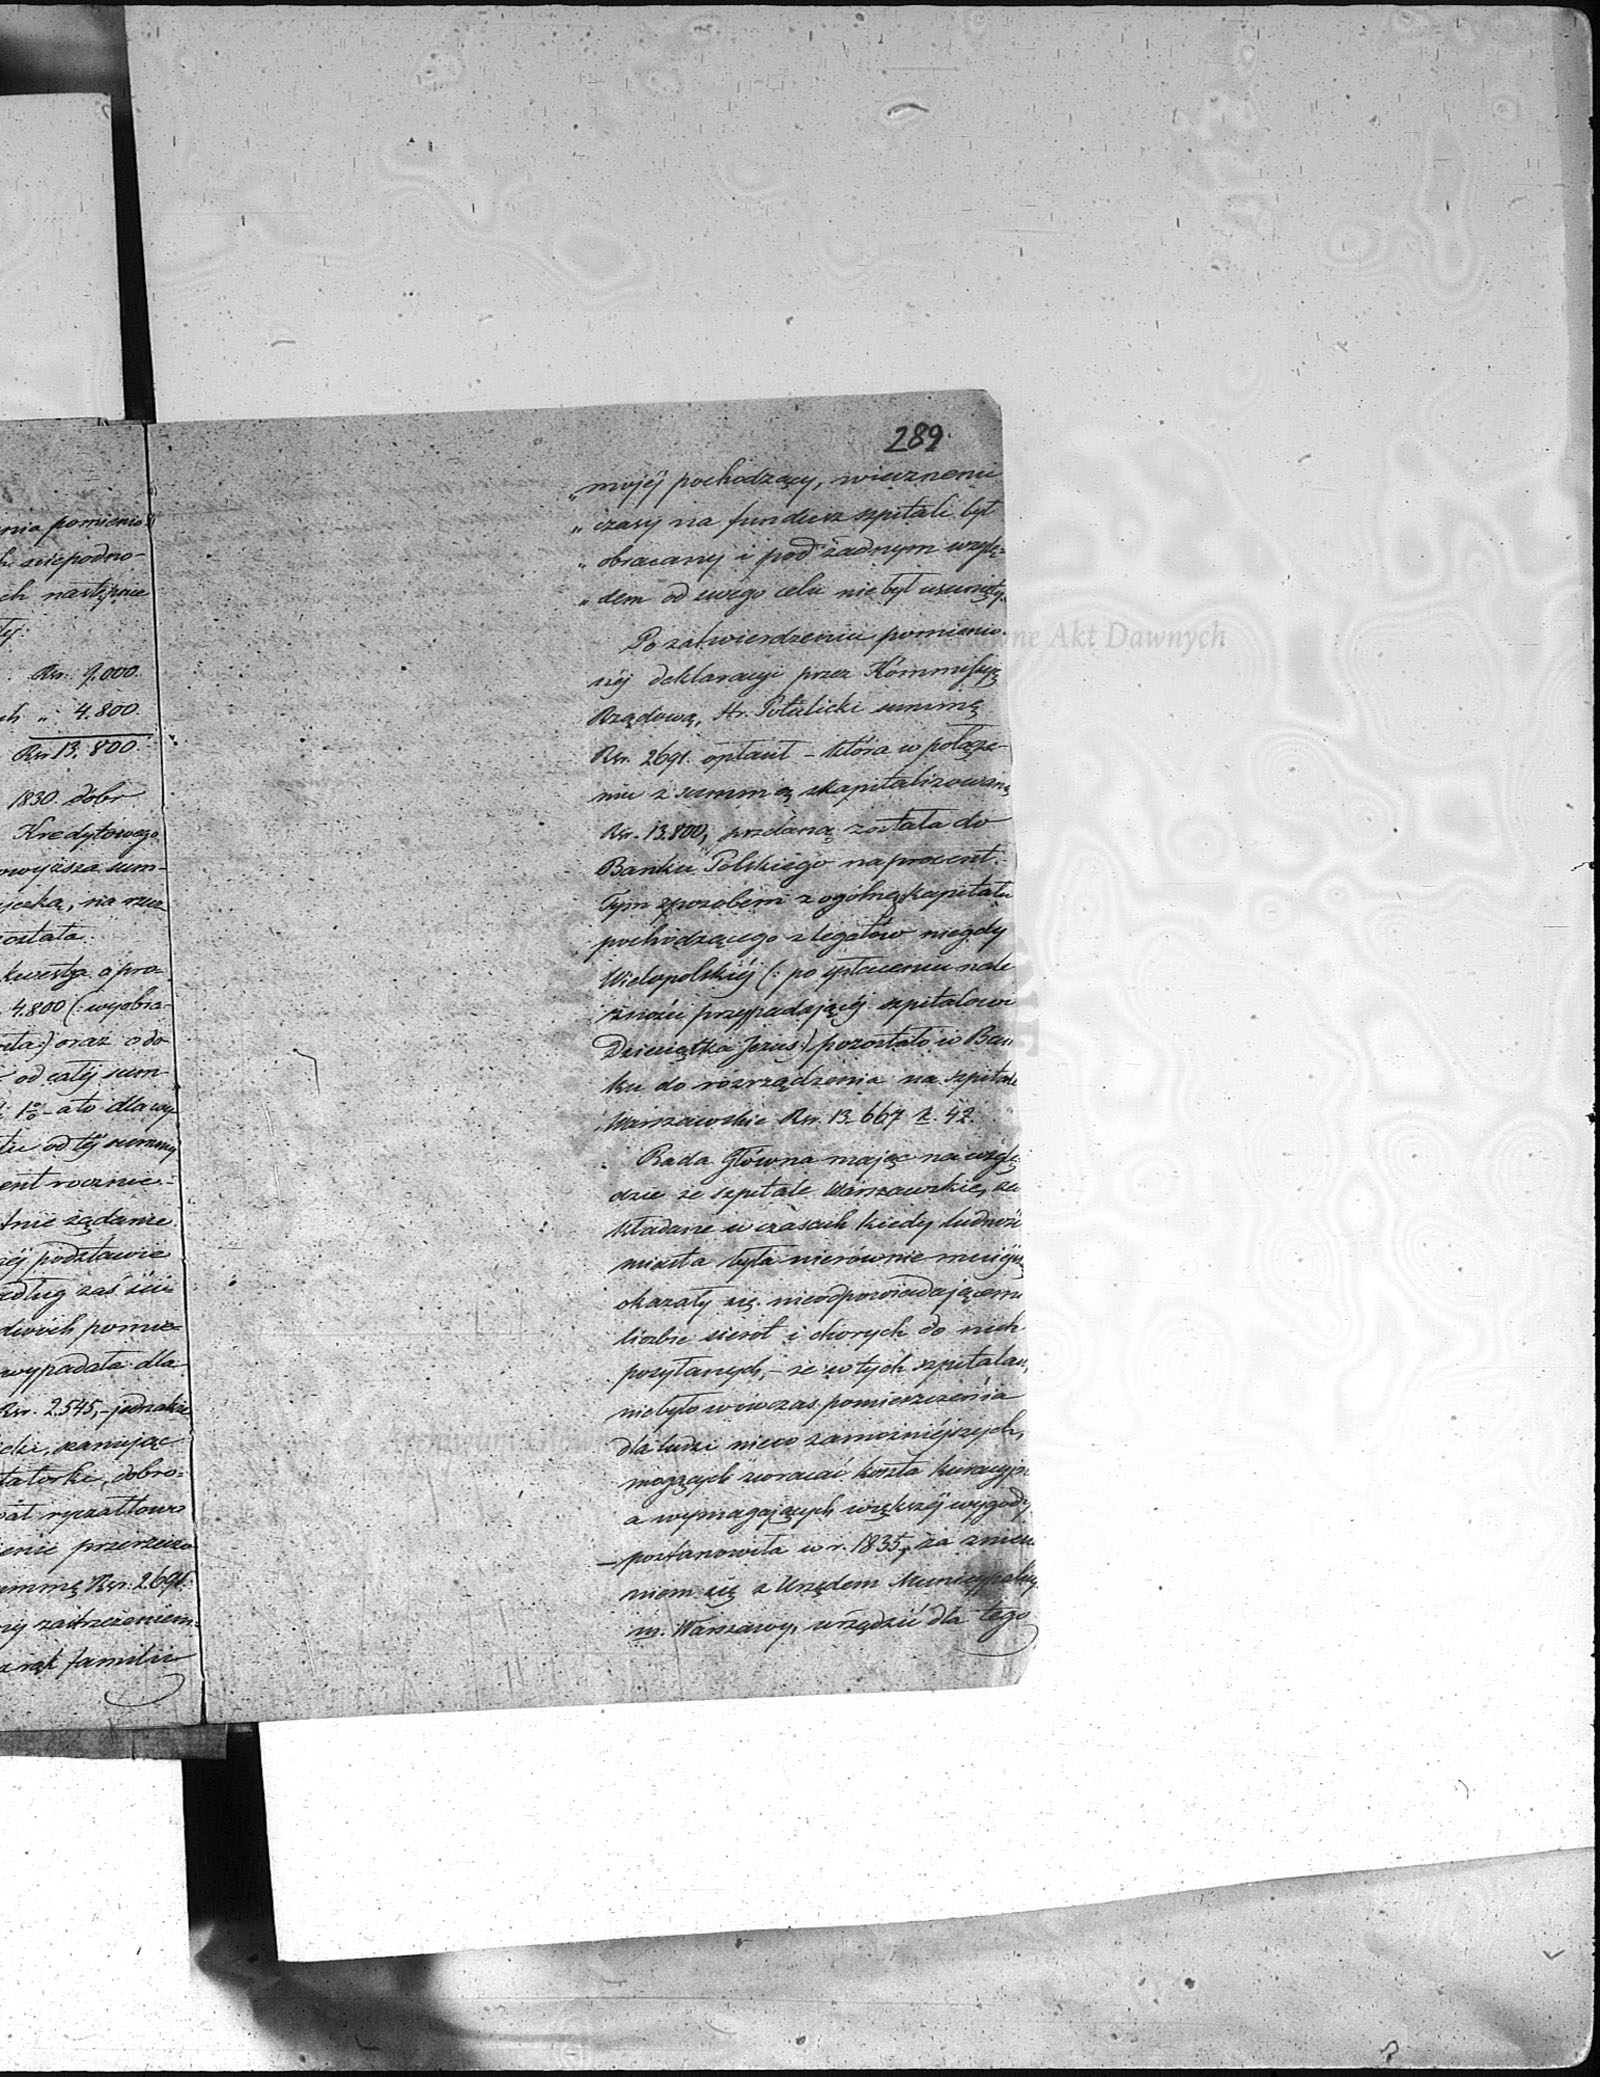 nia pomienio-
h niepodno-
ch następnie
ły:
Rsr. 9.000.
ch „ 4.800.
Rsr 13.800.
1830. dóbr
Kredytowego
owyższa sum-
yczka, na rzecz
ostała.
kwestya o pro-
4.800 (: wyobra-
ta:) oraz o do
od całej sum-
1% - a to dla wy
tu od téj summy
ent rocznie.-
tnie żądanie
éj podstawie
edług zaś ści-
dwóch pomie-
wypadała dla
Rsr. 2.545,- jednakże
cki, szanując
tatorki, dobro-
ał ryczałtowo
enie przerzeczo
ummę Rsr. 2.691.
ny zastrzeżeniem:
z rąk familii
289.
„mojéj pochodzący, wiecznemi
„czasy na fundusz szpitali był
„obracany i pod żadnym wzglę-
„dem od swego celu nie był usunięty.
Po zatwierdzeniu pomienio-
néj deklaracyi przez Kommissyą
Rządową, Hr. Potulicki summę
Rsr. 2691. opłacił - która w połącze-
niu z summą skapitalizowaną
Rsr. 13.800, oddaną została do
Banku Polskiego na procent.-
Tym sposobem z ogólnego kapitału
pochodzącego z legatów niegdy
Wielopolskiéj (: po spłaceniu nale
żności przypadającéj szpitalowi
Dzieciątka Jezus:) pozostało w Ban
ku do rozrządzenia na szpitale
Warszawskie Rsr. 13.667 k. 42.
Rada Główna mając na wzglę
dzie że szpitale Warszawskie, za
kładane w czasach kiedy ludność
miasta była nierównie mniejszą
okazały się nieodpowiadającemi
liczbie sierot i chorych do nich
posyłanych, - że w tych szpitalach
niebyło wówczas pomieszczenia
dla ludzi nieco zamożniéjszych,
mogących zwracać koszta kuracyjne
a wymagających większéj wygody
- postanowiła w r. 1835, za zniesie
niem się z Urzędem Municypalnym
m. Warszawy, urządzić dla tego
ne Akt Dawnych
Archiwum Główne